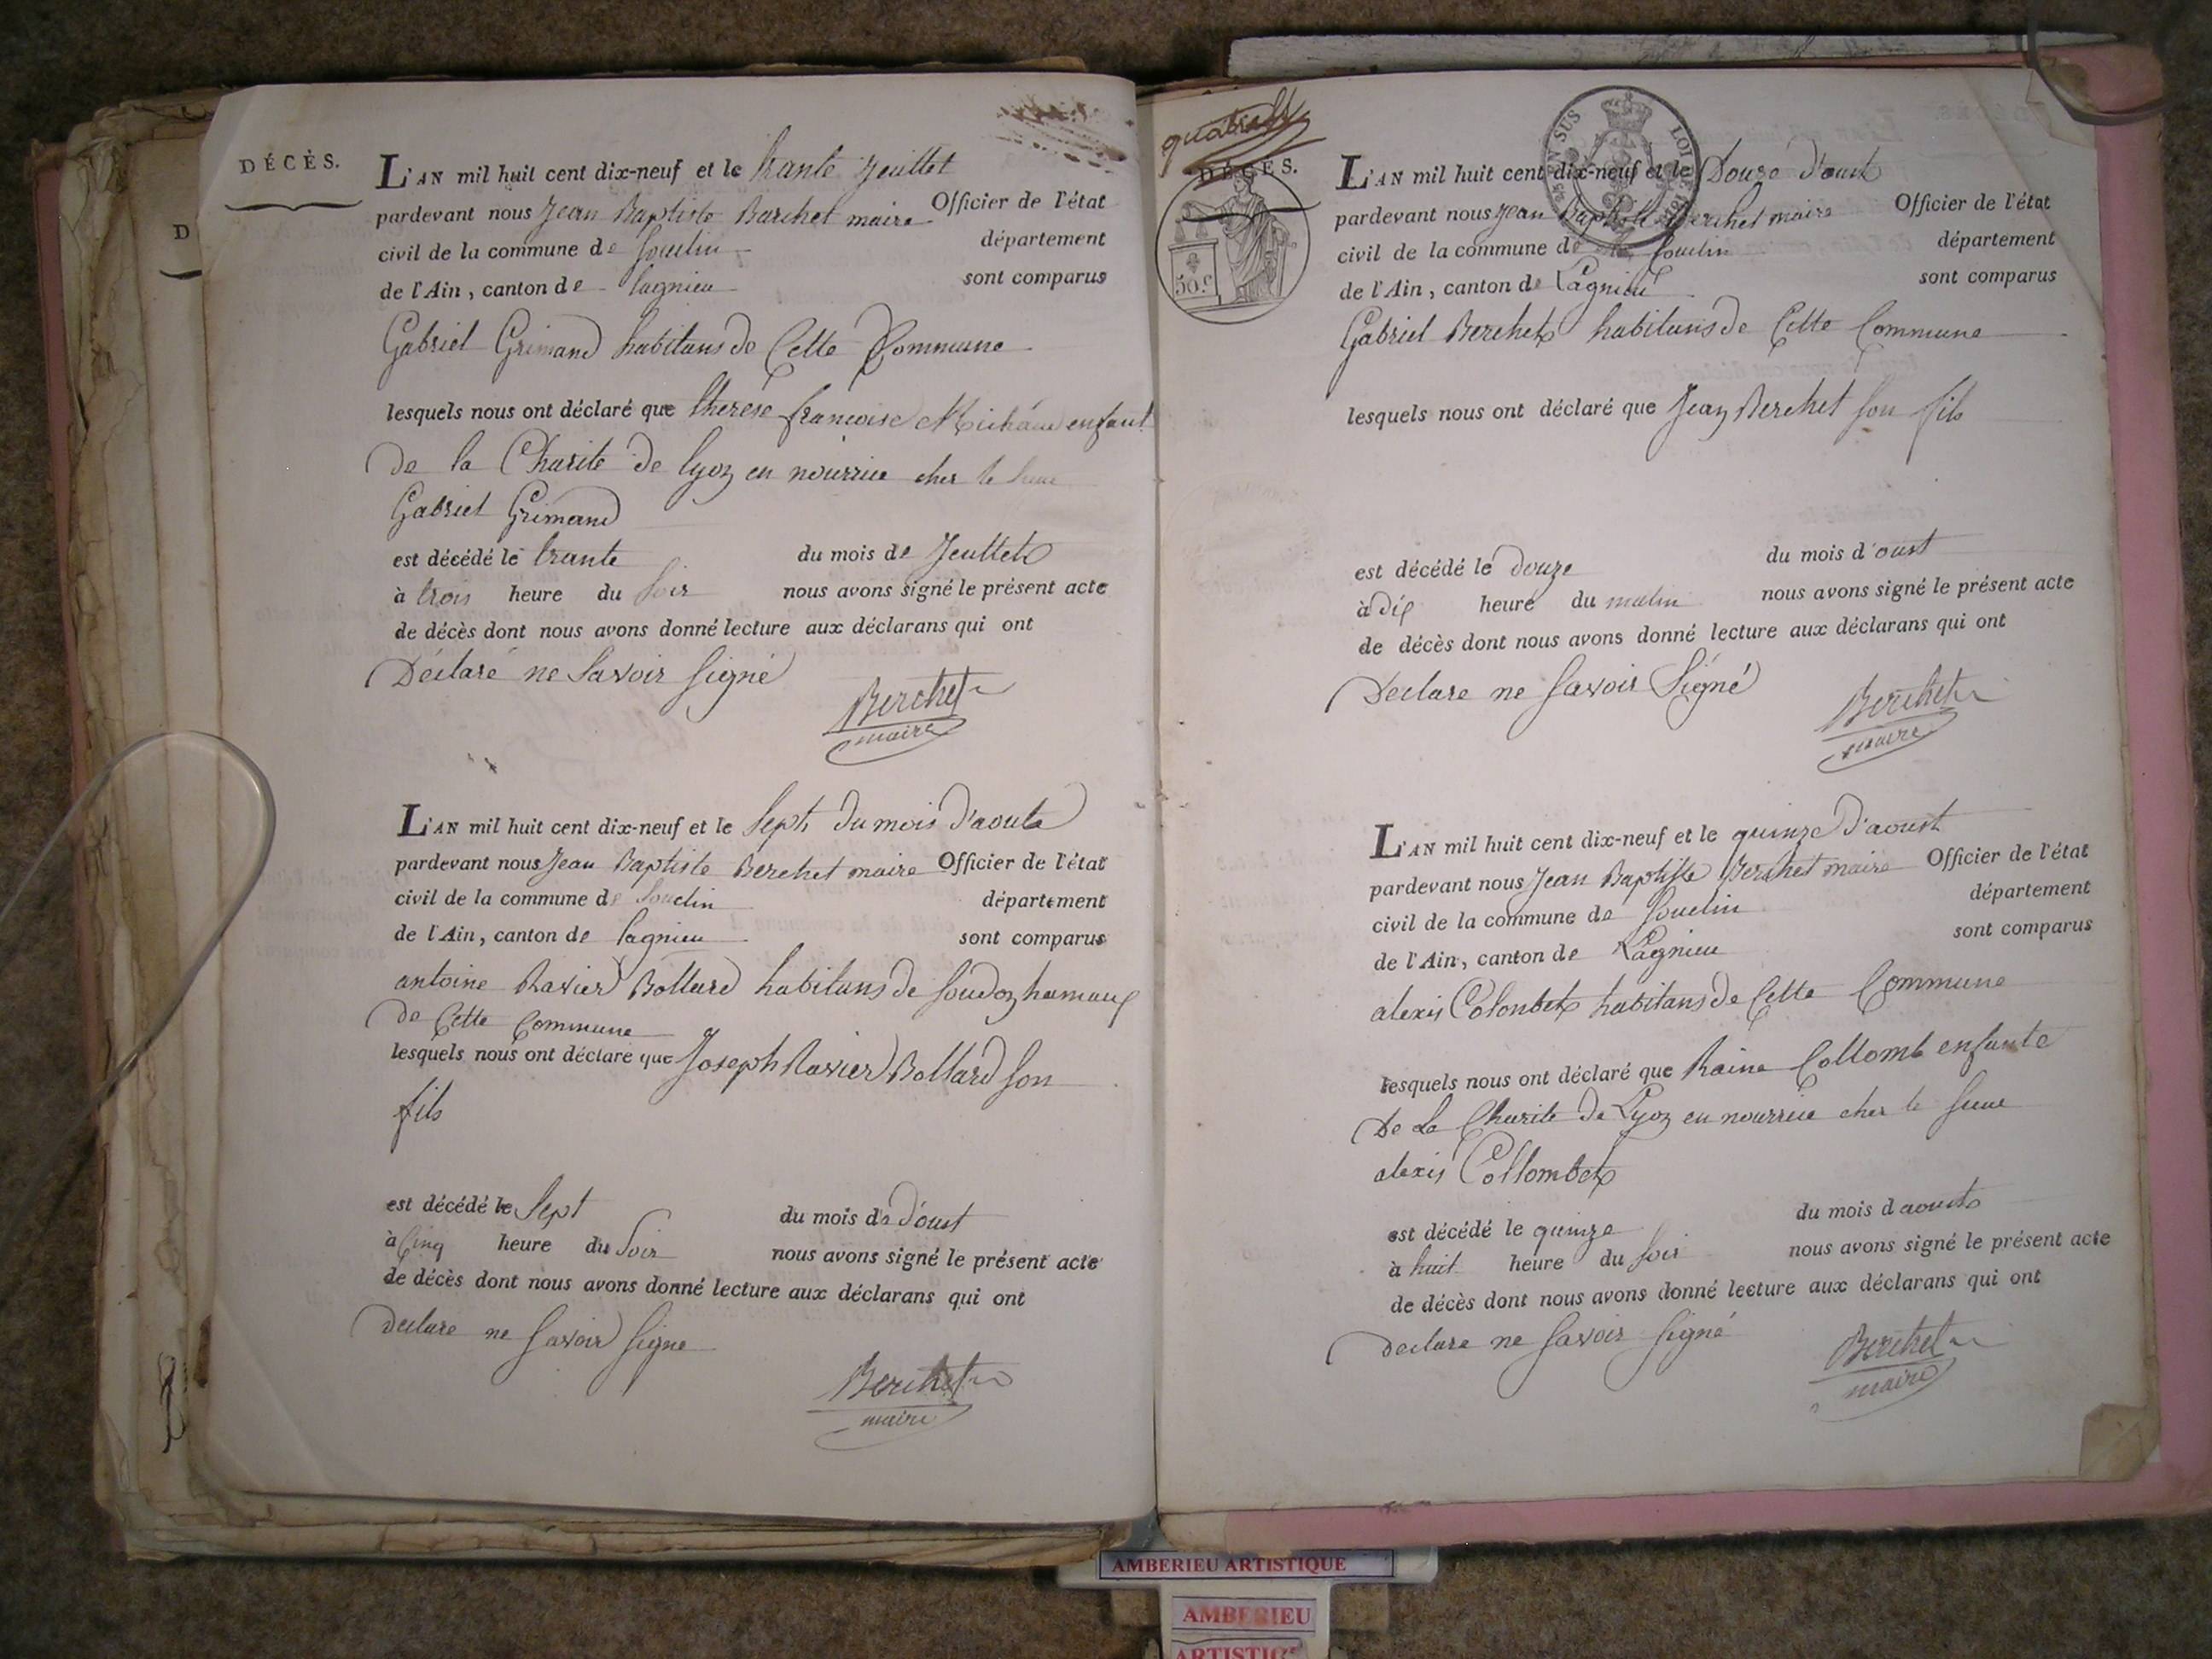 DÉCÈS.
L'AN mil huit cent dix-neuf et le trante Jeuillet
pardevant nous Jean Baptiste Berchet maire Officier de l'état
civil de la commune de Souclin département
de l'Ain, canton de lagnieu sont comparus
Gabriel Grimand habitans de Cette Commune
lesquels nous ont déclaré que therese francoise enfant
De la Charite de lyon en nourrice cher le
Gabriel Grimand
est décédé le trante du mois de Jeullet
à trois heure du Soir nous avons signé le présent acte
de décès dont nous avons donné lecture aux déclarans qui ont
Déclaré ne Savoir signé
Berchet
maire
L'AN mil huit cent dix-neuf et le Sept du mois d'aoust
pardevant nous Jean Baptiste Berchet maire Officier de l'état
civil de la commune de Souclin département
de l'Ain, canton de lagnieu sont comparus
antoine Ravier Bollard habitans de Soudon hamaux
De Cette Commune
lesquels nous ont déclaré que Joseph Ravier Bollard son
fils
est décédé le Sept du mois de d'oust
à Cinq heure du Soir nous avons signé le présent acte
de décès dont nous avons donné lecture aux déclarans qui ont
declare ne Savoir signe
Berchet
maire
D
DÉCÈS.
50 c
SUS
LOI
L'AN mil huit cent dix-neuf et le Douze d'oust
pardevant nous Jean Baptiste Berchet maire Officier de l'état
civil de la commune de Souclin département
de l'Ain, canton de Lagnieu sont comparus
Gabriel Berchet habitans de Cette Commune
lesquels nous ont déclaré que Jean Berchet son fils
est décédé le douze du mois d'oust
à dix heure du matin nous avons signé le présent acte
de décès dont nous avons donné lecture aux déclarans qui ont
Declare ne Savoir Signé
Berchet
maire
L'AN mil huit cent dix-neuf et le quinze d'aoust
pardevant nous Jean Baptiste Berchet maire Officier de l'état
civil de la commune de Souclin département
de l'Ain, canton de Lagnieu sont comparus
alexis Colonbet habitans de Cette Commune
lesquels nous ont déclaré que Raine Collomb enfante
De La Charite de Lyon en nourrice cher le sieur
alexis Collombet
est décédé le quinze du mois d aoust
à huit heure du Soir nous avons signé le présent acte
de décès dont nous avons donné lecture aux déclarans qui ont
declare ne Savoir signé
Berchet
maire
AMBERIEU ARTISTIQUE
AMBERIEU
ARTISTIQUE